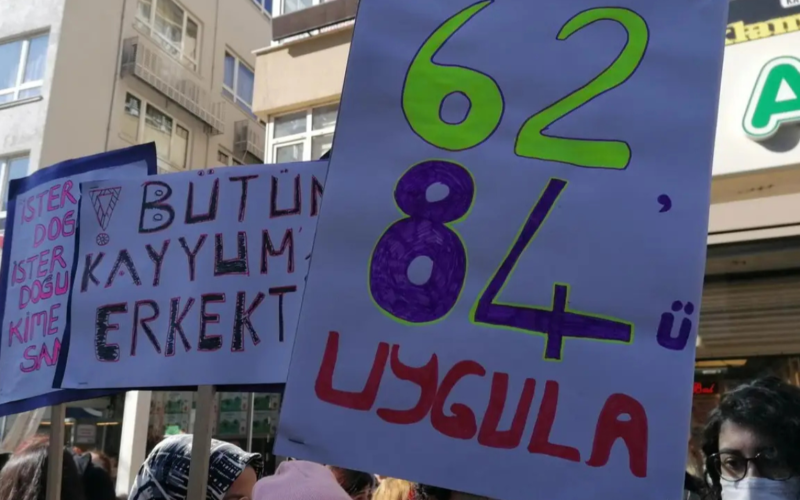 İSTER
DOĞ
İSTER
DOĞU
KİME
SAN
BÜTÜN
KAYYUM'
ERKEKT
62
84'ü
UYGULA
A